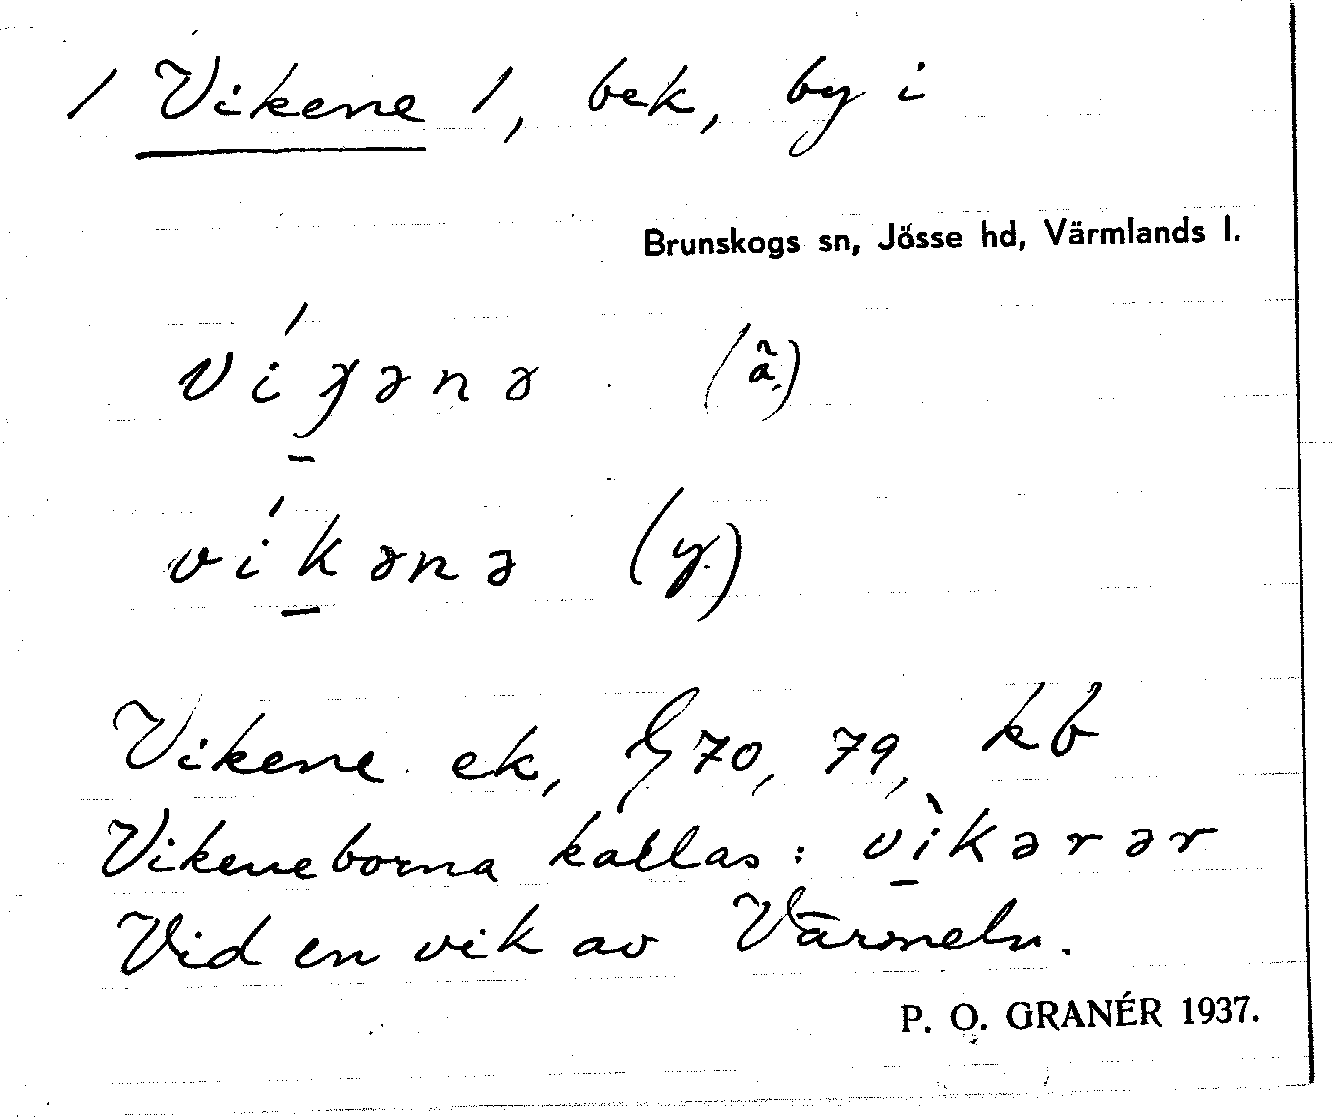 / Vikene /, bek, by i
Brunskogs sn, Jösse hd, Värmlands l.
víɡənə (ä)
víkənə (y.)
Vikene ek, G 70, 79, kb
Vikeneborna kallas: vìkərər
Vid en vik av Värmeln.
P. O. GRANÉR 1937.